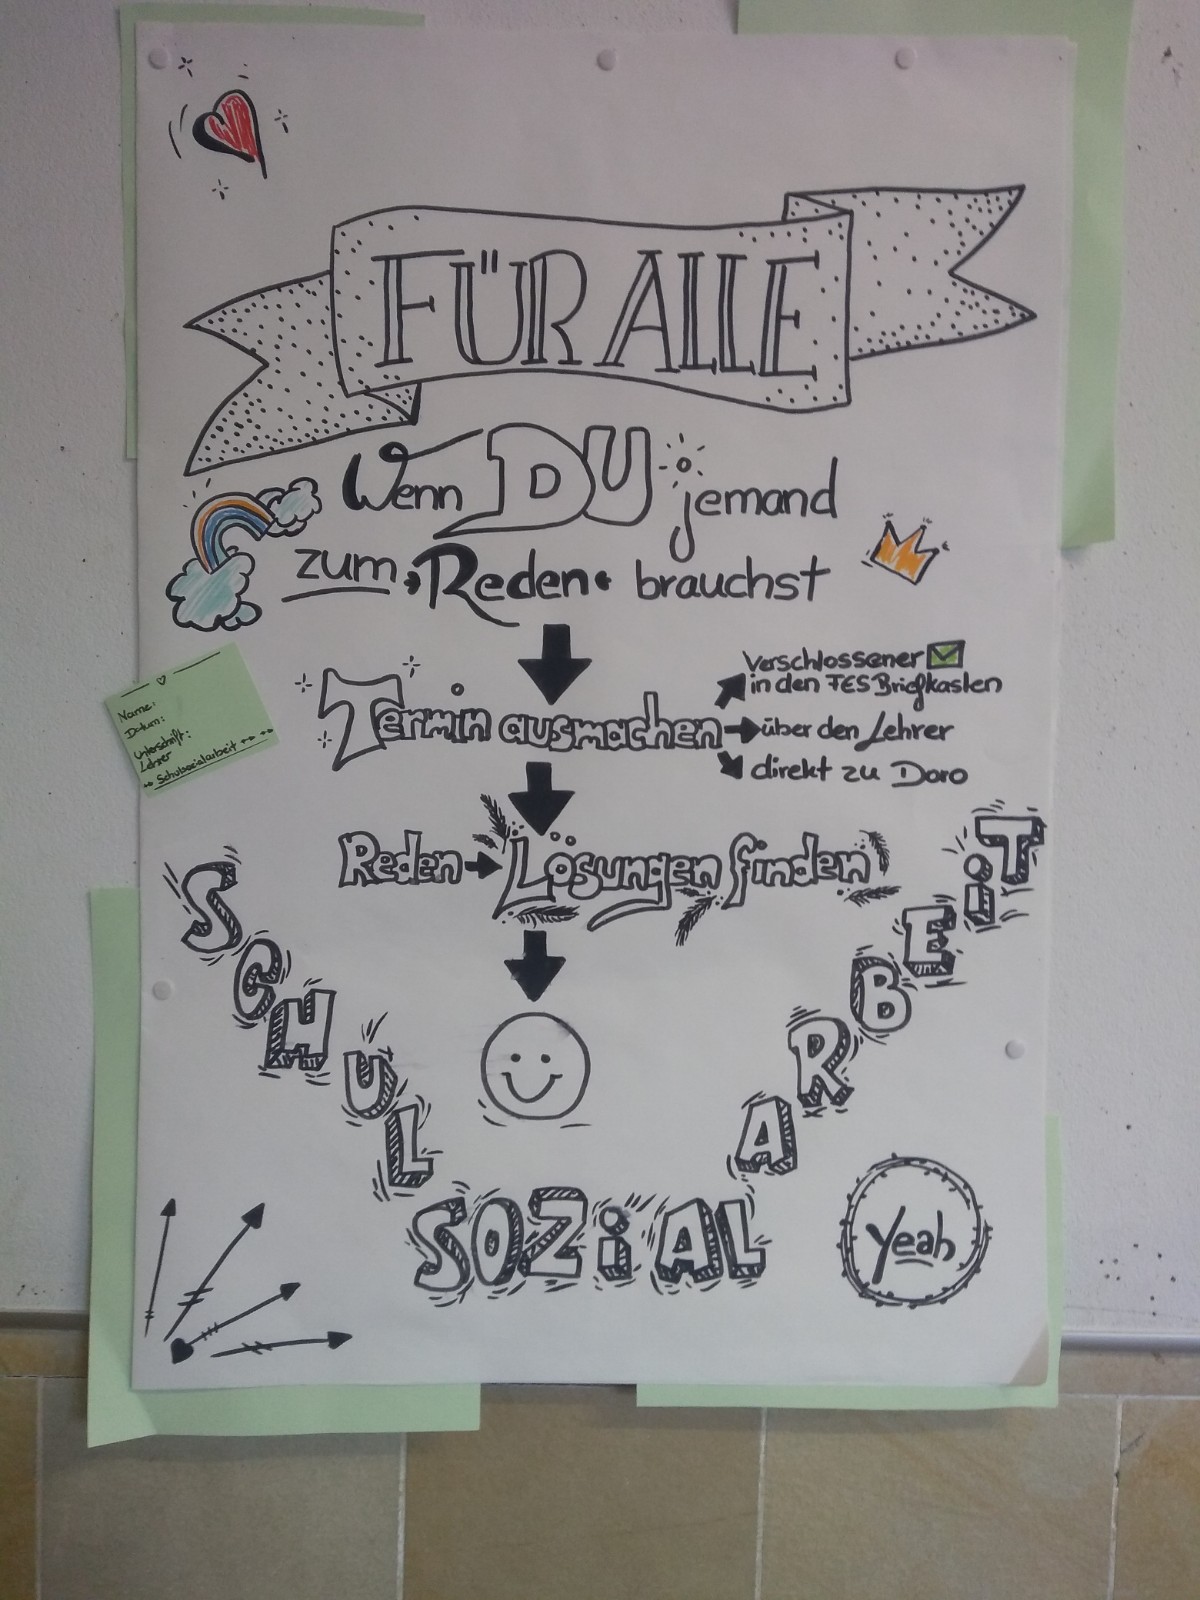 FÜR ALLE
Wenn DU jemand
zum Reden brauchst
Termin ausmachen
Verschlossener
in den FES Briefkasten
über den Lehrer
direkt zu Doro
Name:
Datum:
Unterschrift:
Lehrer
Schulsozialarbeit
Reden Lösungen finden
SCHULSOZiALARBEiT
Yeah